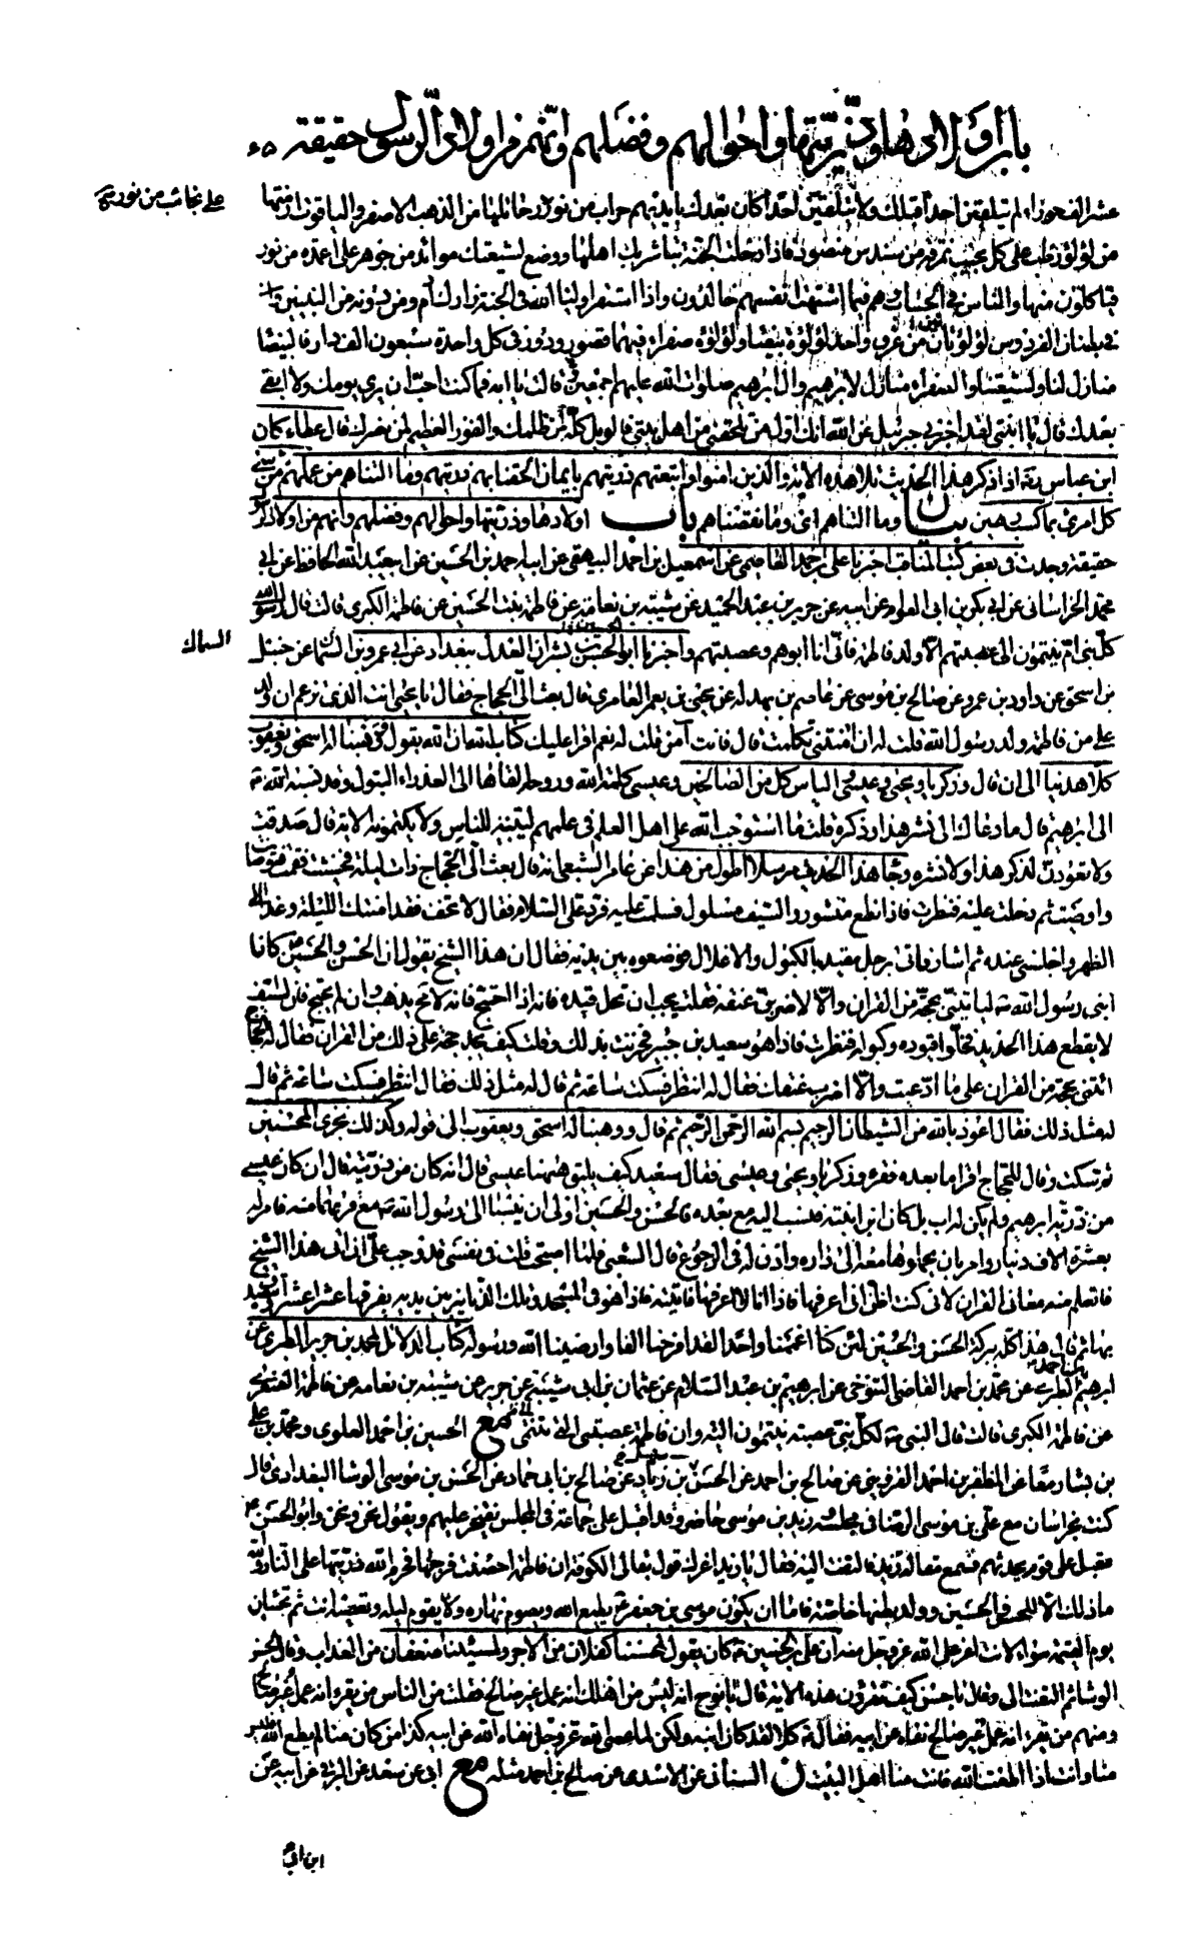 باب اولادها وذريتها واحوالهم وفضلهم وانهم من اولاد الرسول حقيقة
عشر الف حوراء لم يتلقين احدا قبلك ولا يتلقين احدا كان بعدك بايديهم حراب من نور على نجائب من نور من الذهب الاصفر والياقوت ازمتها
من لؤلؤ رطب على كل نجيب نمرقة من سندس منضود فاذا دخلت الجنة تباشر بك اهلها ووضع لشيعتك موائد من جوهر على اعمدة من نور
فياكلون منها والناس في الحساب وهم فيما اشتهت انفسهم خالدون واذا استقر اولياء الله في الجنة زارك آدم ومن دونه من النبيين وان
في بطنان الفردوس لؤلؤتان من عرق واحد لؤلؤة بيضاء ولؤلؤة صفراء فيهما قصور ودور في كل واحدة سبعون الف دار فالبيضاء
منازل لنا ولشيعتنا والصفراء منازل لابرهيم وآل ابرهيم صلوات الله عليهم اجمعين قالت يا ابه فما كنت احب ان ارى يومك ولا ابقى
بعدك قال يا ابنتي لقد اخبرني جبرئيل عن الله انك اول من يلحقني من اهل بيتي فالويل كله لمن ظلمك والفوز العظيم لمن نصرك قال عطاء كان
ابن عباس اذا ذكر هذا الحديث تلا هذه الاية والذين امنوا واتبعتهم ذريتهم بايمان الحقنا بهم ذريتهم وما التناهم من عملهم من شئ
كل امرئ بما كسب رهين بيان وما التناهم اى وما نقصناهم باب اولادها وذريتها واحوالهم وفضلهم وانهم من اولاد الرسول
حقيقة وجدت في بعض كتب المناقب اخبرنا علي بن احمد العاصمي عن اسمعيل بن احمد البيهقي عن ابيه احمد بن الحسين عن ابي عبد الله الحافظ عن ابي
محمد الخراساني عن ابي بكر بن ابي العوام عن ابيه عن جرير بن عبد الحميد عن شيبة بن نعامة عن فاطمة بنت الحسين عن فاطمة الكبرى قالت قال رسول الله
كل بني ام ينتمون الى عصبتهم الا ولد فاطمة فاني انا ابوهم وعصبتهم واخبرنا ابو الحسين بن بشران العدل ببغداد عن ابي عمرو بن السماك عن حنبل
بن اسحق عن داود بن عمرو عن صالح بن موسى عن عاصم بن بهدلة عن يحيى بن يعمر العامري قال بعث الى الحجاج فقال يا يحيى انت الذي تزعم ان ولد
علي من فاطمة ولد رسول الله قلت له ان امنتني تكلمت قال فانت آمن قلت له نعم اقرا عليك كتاب الله ان الله يقول ووهبنا له اسحق ويعقوب
كلا هدينا الى ان قال وزكريا ويحيى وعيسى والياس كل من الصالحين وعيسى كلمة الله وروحه القاها الى العذراء البتول وقد نسبه الله تع
الى ابرهيم قال ما دعاك الى نشر هذا وذكره قلت ما استوجب الله على اهل العلم في علمهم ليبيننه للناس ولا يكتمونه الاية قال صدقت
ولا تعودن لذكر هذا ولا نشره وجاء هذا الحديث مرسلا اطول من هذا عن عامر الشعبي انه قال بعث الي الحجاج ذات ليلة فخشيت فقمت فتوضات
واوصيت ثم دخلت عليه فنظرت فاذا نطع منشور والسيف مسلول فسلمت عليه فرد علي السلام فقال لا تخف فقد امنتك الليلة وغدا الى
الظهر واجلسني عنده ثم اشار فاتي برجل مقيد بالكبول والاغلال فوضعوه بين يديه فقال ان هذا الشيخ يقول ان الحسن والحسين كانا
ابني رسول الله ص لياتيني بحجة من القرآن والا لاضربن عنقه فقلت يجب ان تحل قيده فانه اذا احتج فانه لا مح يذهب وان لم يحتج فان السيف
لا يقطع هذا الحديد فحلوا قيوده وكبوله فنظرت فاذا هو سعيد بن جبير فحزنت بذلك وقلت كيف يجد حجة على ذلك من القرآن فقال له الحجاج
ائتني بحجة من القرآن على ما ادعيت والا اضرب عنقك فقال له انتظر فسكت ساعة ثم قال له مثل ذلك فقال انتظر فسكت ساعة ثم قال
له مثل ذلك فقال اعوذ بالله من الشيطان الرجيم بسم الله الرحمن الرحيم ثم قال ووهبنا له اسحق ويعقوب الى قوله وكذلك نجزي المحسنين
ثم سكت وقال للحجاج اقرا ما بعده فقرء وزكريا ويحيى وعيسى فقال سعيد كيف يليق ههنا عيسى قال انه كان من ذريته قال ان كان عيسى
من ذرية ابرهيم ولم يكن له اب بل كان ابن ابنته فنسب اليه مع بعده فالحسن والحسين اولى ان ينسبا الى رسول الله ص مع قربهما منه فامر له
بعشرة الاف دينار وامر بان يحملوها معه الى داره واذن له في الرجوع قال الشعبي فلما اصبحت قلت في نفسي قد وجب علي ان اتى هذا الشيخ
فاتعلم منه معاني القرآن لاني كنت اظن اني اعرفها فاذا انا لا اعرفها فاتيته فاذا هو في المسجد وتلك الدنانير بين يديه يفرقها عشرا عشرا ويتصدق
بها ثم قال هذا كله ببركة الحسن والحسين لئن كنا اغممنا واحدا لقد افرحنا الفا وارضينا الله ورسوله كتاب الدلائل لمحمد بن جرير الطبري عن
ابرهيم بن احمد الطبري عن محمد بن احمد القاضي التنوخي عن ابرهيم بن عبد السلام عن عثمان بن ابي شيبة عن جرير عن شيبة بن نعامة عن فاطمة الصغرى
عن فاطمة الكبرى قالت قال النبي ص لكل نبي عصبة ينتمون اليه وان فاطمة عصبتي الي تنتمي مع الحسين بن احمد العلوي ومحمد بن علي
بن بشار معا عن المظفر بن احمد القزويني عن صالح بن احمد عن الحسن بن زياد عن صالح بن ابي حماد عن الحسن بن موسى الوشاء البغدادي قال
كنت بخراسان مع علي بن موسى الرضا في مجلسه وزيد بن موسى حاضر وقد اقبل على جماعة في المجلس يفتخر عليهم ويقول نحن ونحن وابو الحسن ع
مقبل على قوم يحدثهم فسمع مقالة زيد فالتفت اليه فقال يا زيد اغرك قول بقالي الكوفة ان فاطمة احصنت فرجها فحرم الله ذريتها على النار والله
ما ذلك الا للحسن والحسين وولد بطنها خاصة فاما ان يكون موسى بن جعفر ع يطيع الله ويصوم نهاره ويقوم ليله وتعصيه انت ثم تجيئان
يوم القيمة سواء لانت اعز على الله عز وجل منه ان علي بن الحسين ع كان يقول لمحسننا كفلان من الاجر ولمسيئنا ضعفان من العذاب وقال الحسن
الوشا ثم التفت الي وقال يا حسن كيف تقرؤن هذه الاية قال يا نوح انه ليس من اهلك انه عمل غير صالح فقلت من الناس من يقرء انه عمل غير صالح
ومنهم من يقرء انه عمل غير صالح نفاه عن ابيه فقال ع كلا لقد كان ابنه ولكن لما عصى الله عز وجل نفاه الله عن ابيه كذا من كان منا لم يطع الله فليس
منا وانت اذا اطعت الله فانت منا اهل البيت ن السناني عن الاسدي عن صالح بن احمد مثله مع ابي عن سعد عن البرقي عن ابيه عن
ابن ابي